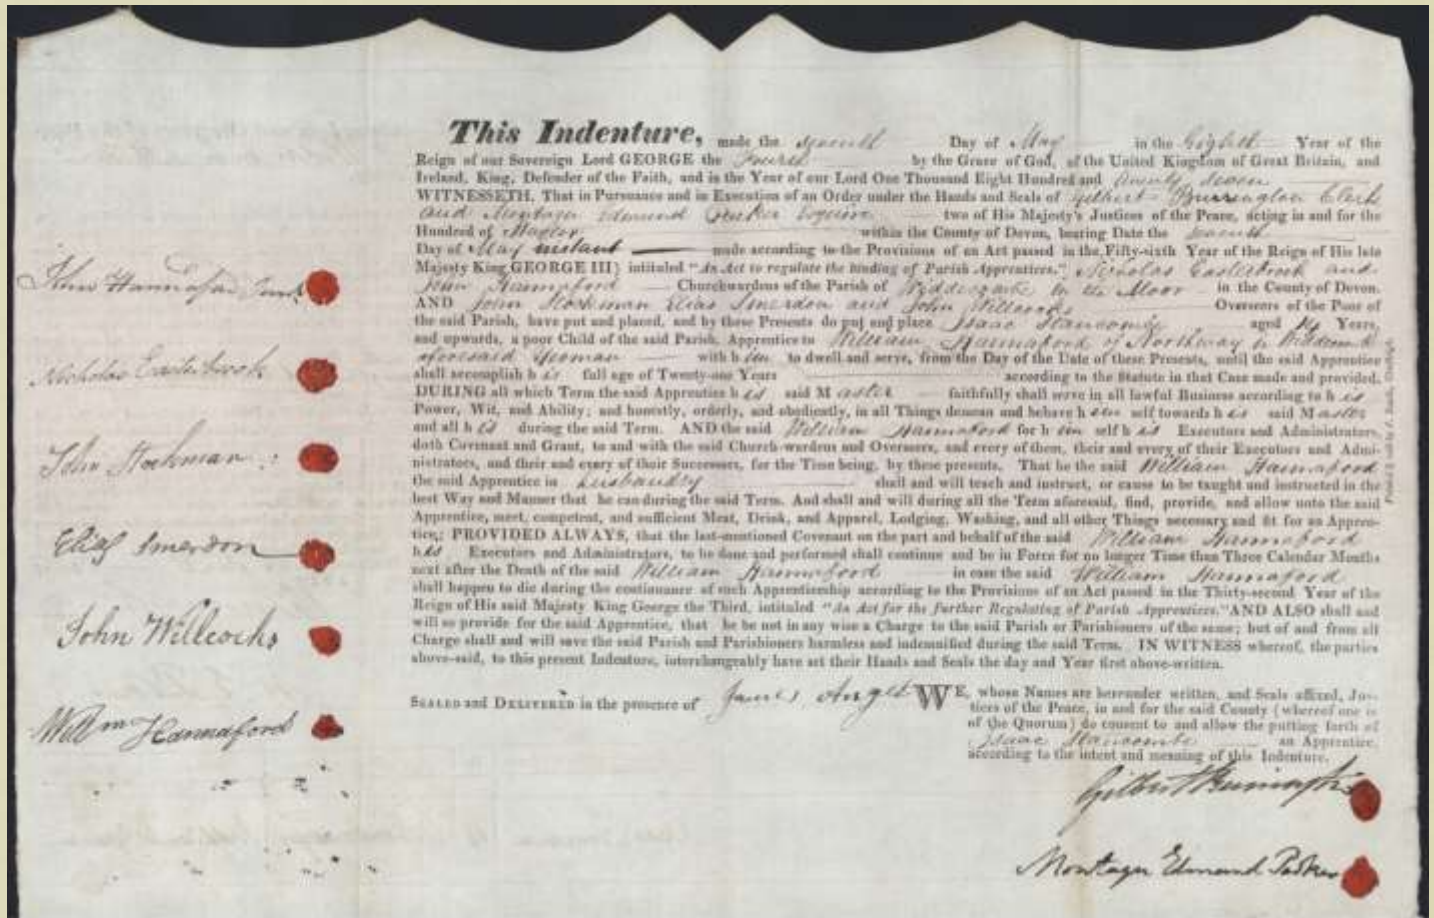 This Indenture, made the seventh Day of May in the Eighth Year of the
Reign of our Sovereign Lord GEORGE the Fourth by the Grace of God, of the United Kingdom of Great Britain, and
Ireland, King, Defender of the Faith, and in the Year of our Lord One Thousand Eight Hundred and twenty seven
WITNESSETH, That in Pursuance and in Execution of an Order under the Hands and Seals of Gilbert Burrington Clerk
and Montague Edmund Parker Esquire two of His Majesty's Justices of the Peace, acting in and for the
Hundred of Haytor within the County of Devon, bearing Date the seventh
Day of May instant made according to the Provisions of an Act passed in the Fifty-sixth Year of the Reign of His late
Majesty King GEORGE III; intituled "An Act to regulate the binding of Parish Apprentices." Nicholas Easterbrook and
John Hannaford Churchwardens of the Parish of Widdecombe in the Moor in the County of Devon.
AND John Stockman Elias Smerdon and John Willcocks Overseers of the Poor of
the said Parish, have put and placed, and by these Presents do put and place Isaac Hancombe aged 14 Years,
and upwards, a poor Child of the said Parish, Apprentice to William Hannaford of Northway in Widdecombe
aforesaid Yeoman with him to dwell and serve, from the Day of the Date of these Presents, until the said Apprentice
shall accomplish his full age of Twenty-one Years according to the Statute in that Case made and provided.
DURING all which Term the said Apprentice his said Master faithfully shall serve in all lawful Business according to his
Power, Wit, and Ability; and honestly, orderly, and obediently, in all Things demean and behave him self towards his said Master
and all his during the said Term. AND the said William Hannaford for him self his Executors and Administrators,
doth Covenant and Grant, to and with the said Church-wardens and Overseers, and every of them, their and every of their Executors and Admi-
nistrators, and their and every of their Successors, for the Time being, by these presents, That he the said William Hannaford
the said Apprentice in husbandry shall and will teach and instruct, or cause to be taught and instructed in the
best Way and Manner that he can during the said Term. And shall and will during all the Term aforesaid, find, provide, and allow unto the said
Apprentice, meet, competent, and sufficient Meat, Drink, and Apparel, Lodging, Washing, and all other Things necessary and fit for an Appren-
tice; PROVIDED ALWAYS, that the last-mentioned Covenant on the part and behalf of the said William Hannaford
his Executors and Administrators, to be done and performed shall continue and be in Force for no longer Time than Three Calendar Months
next after the Death of the said William Hannaford in case the said William Hannaford
shall happen to die during the continuance of such Apprenticeship according to the Provisions of an Act passed in the Thirty-second Year of the
Reign of His said Majesty King George the Third, intituled "An Act for the further Regulating of Parish Apprentices." AND ALSO shall and
will so provide for the said Apprentice, that he be not in any wise a Charge to the said Parish or Parishioners of the same; but of and from all
Charge shall and will save the said Parish and Parishioners harmless and indemnified during the said Term. IN WITNESS whereof, the parties
above-said, to this present Indenture, interchangeably have set their Hands and Seals the day and Year first above-written.
John Hannaford Junr
Nicholas Easterbrook
John Stockman
Elias Smerdon
John Willcocks
Willm Hannaford
SEALED and DELIVERED in the presence of James Angel
WE, whose Names are hereunder written, and Seals affixed, Jus-
tices of the Peace, in and for the said County (whereof one is
of the Quorum) do consent to and allow the putting forth of
Isaac Hancombe an Apprentice,
according to the intent and meaning of this Indenture.
Gilbert Burrington
Montague Edmund Parker